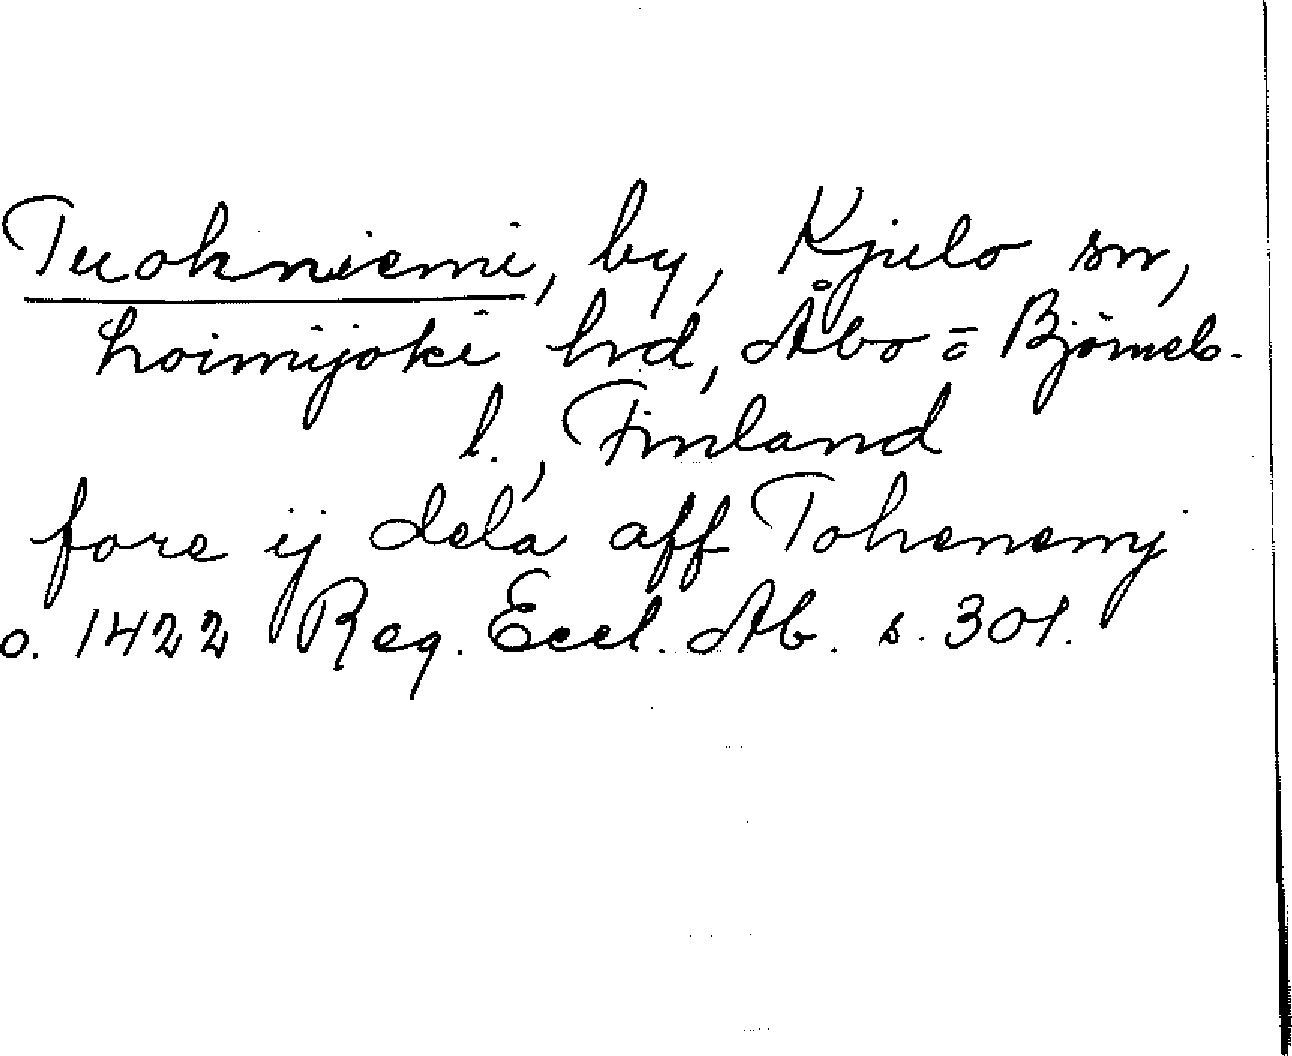 Tuokniemi, by, Kjulo sn,
hoimijoki hrd, Åbo = Björneb.
l., Finland
fore ij dela aff Tohenemj
o. 1422 Reg. Eccl. Ab. s. 301.